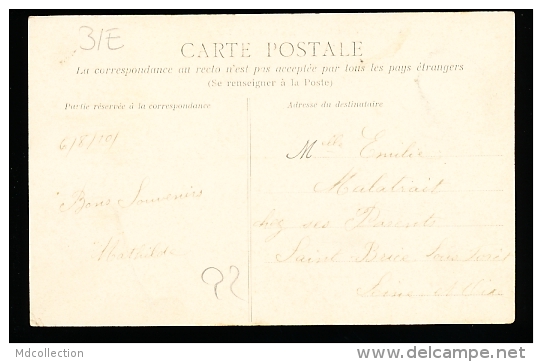 31E
CARTE POSTALE
La correspondance au recto n'est pas acceptée par tous les pays étrangers
(Se renseigner à la Poste)
Partie réservée à la correspondance
Adresse du destinataire
6/8/
Bons Souvenirs
Mathilde
Melle Emilie
chez ses Parents
Saint Brice sous
Seine et Oise
Mdcollection
http://www.delcampe.net